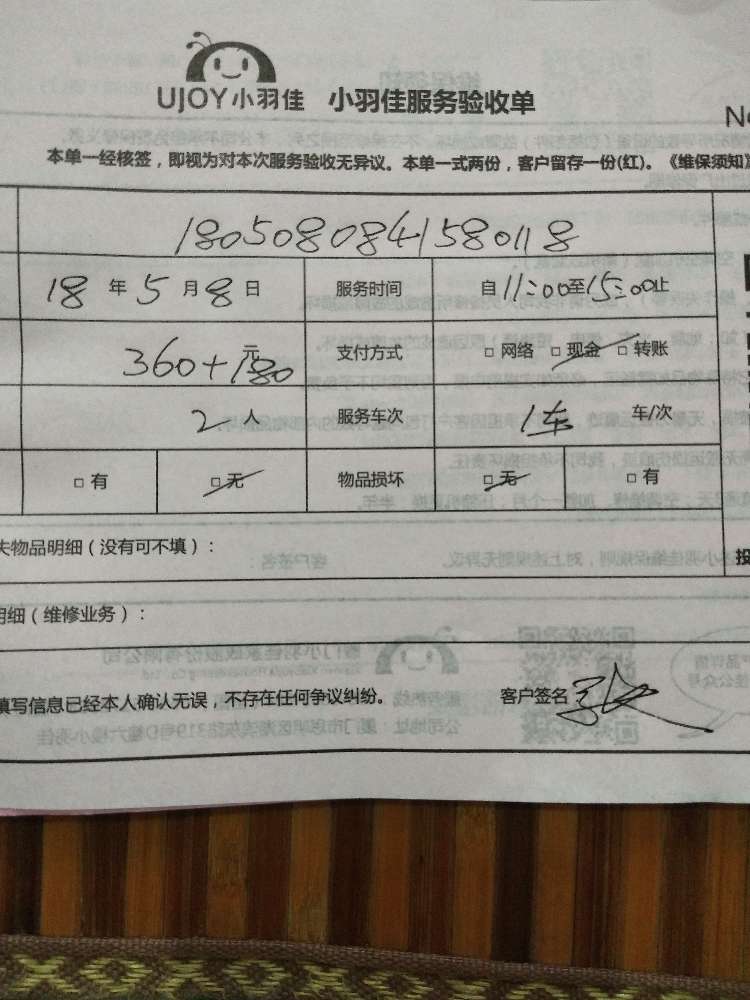 UJOY小羽佳 小羽佳服务验收单
N
本单一经核签，即视为对本次服务验收无异议。本单一式两份，客户留存一份(红)。《维保须知》
1805080841580118
18 年 5 月 8 日 服务时间 自 11:00 至 15:00 止
360+180 元 支付方式 □ 网络 □ 现金 □ 转账
2 人 服务车次 1车 车/次
□ 有 □ 无 物品损坏 □ 无 □ 有
失物品明细（没有可不填）：
投
明细（维修业务）：
填写信息已经本人确认无误，不存在任何争议纠纷。 客户签名 张